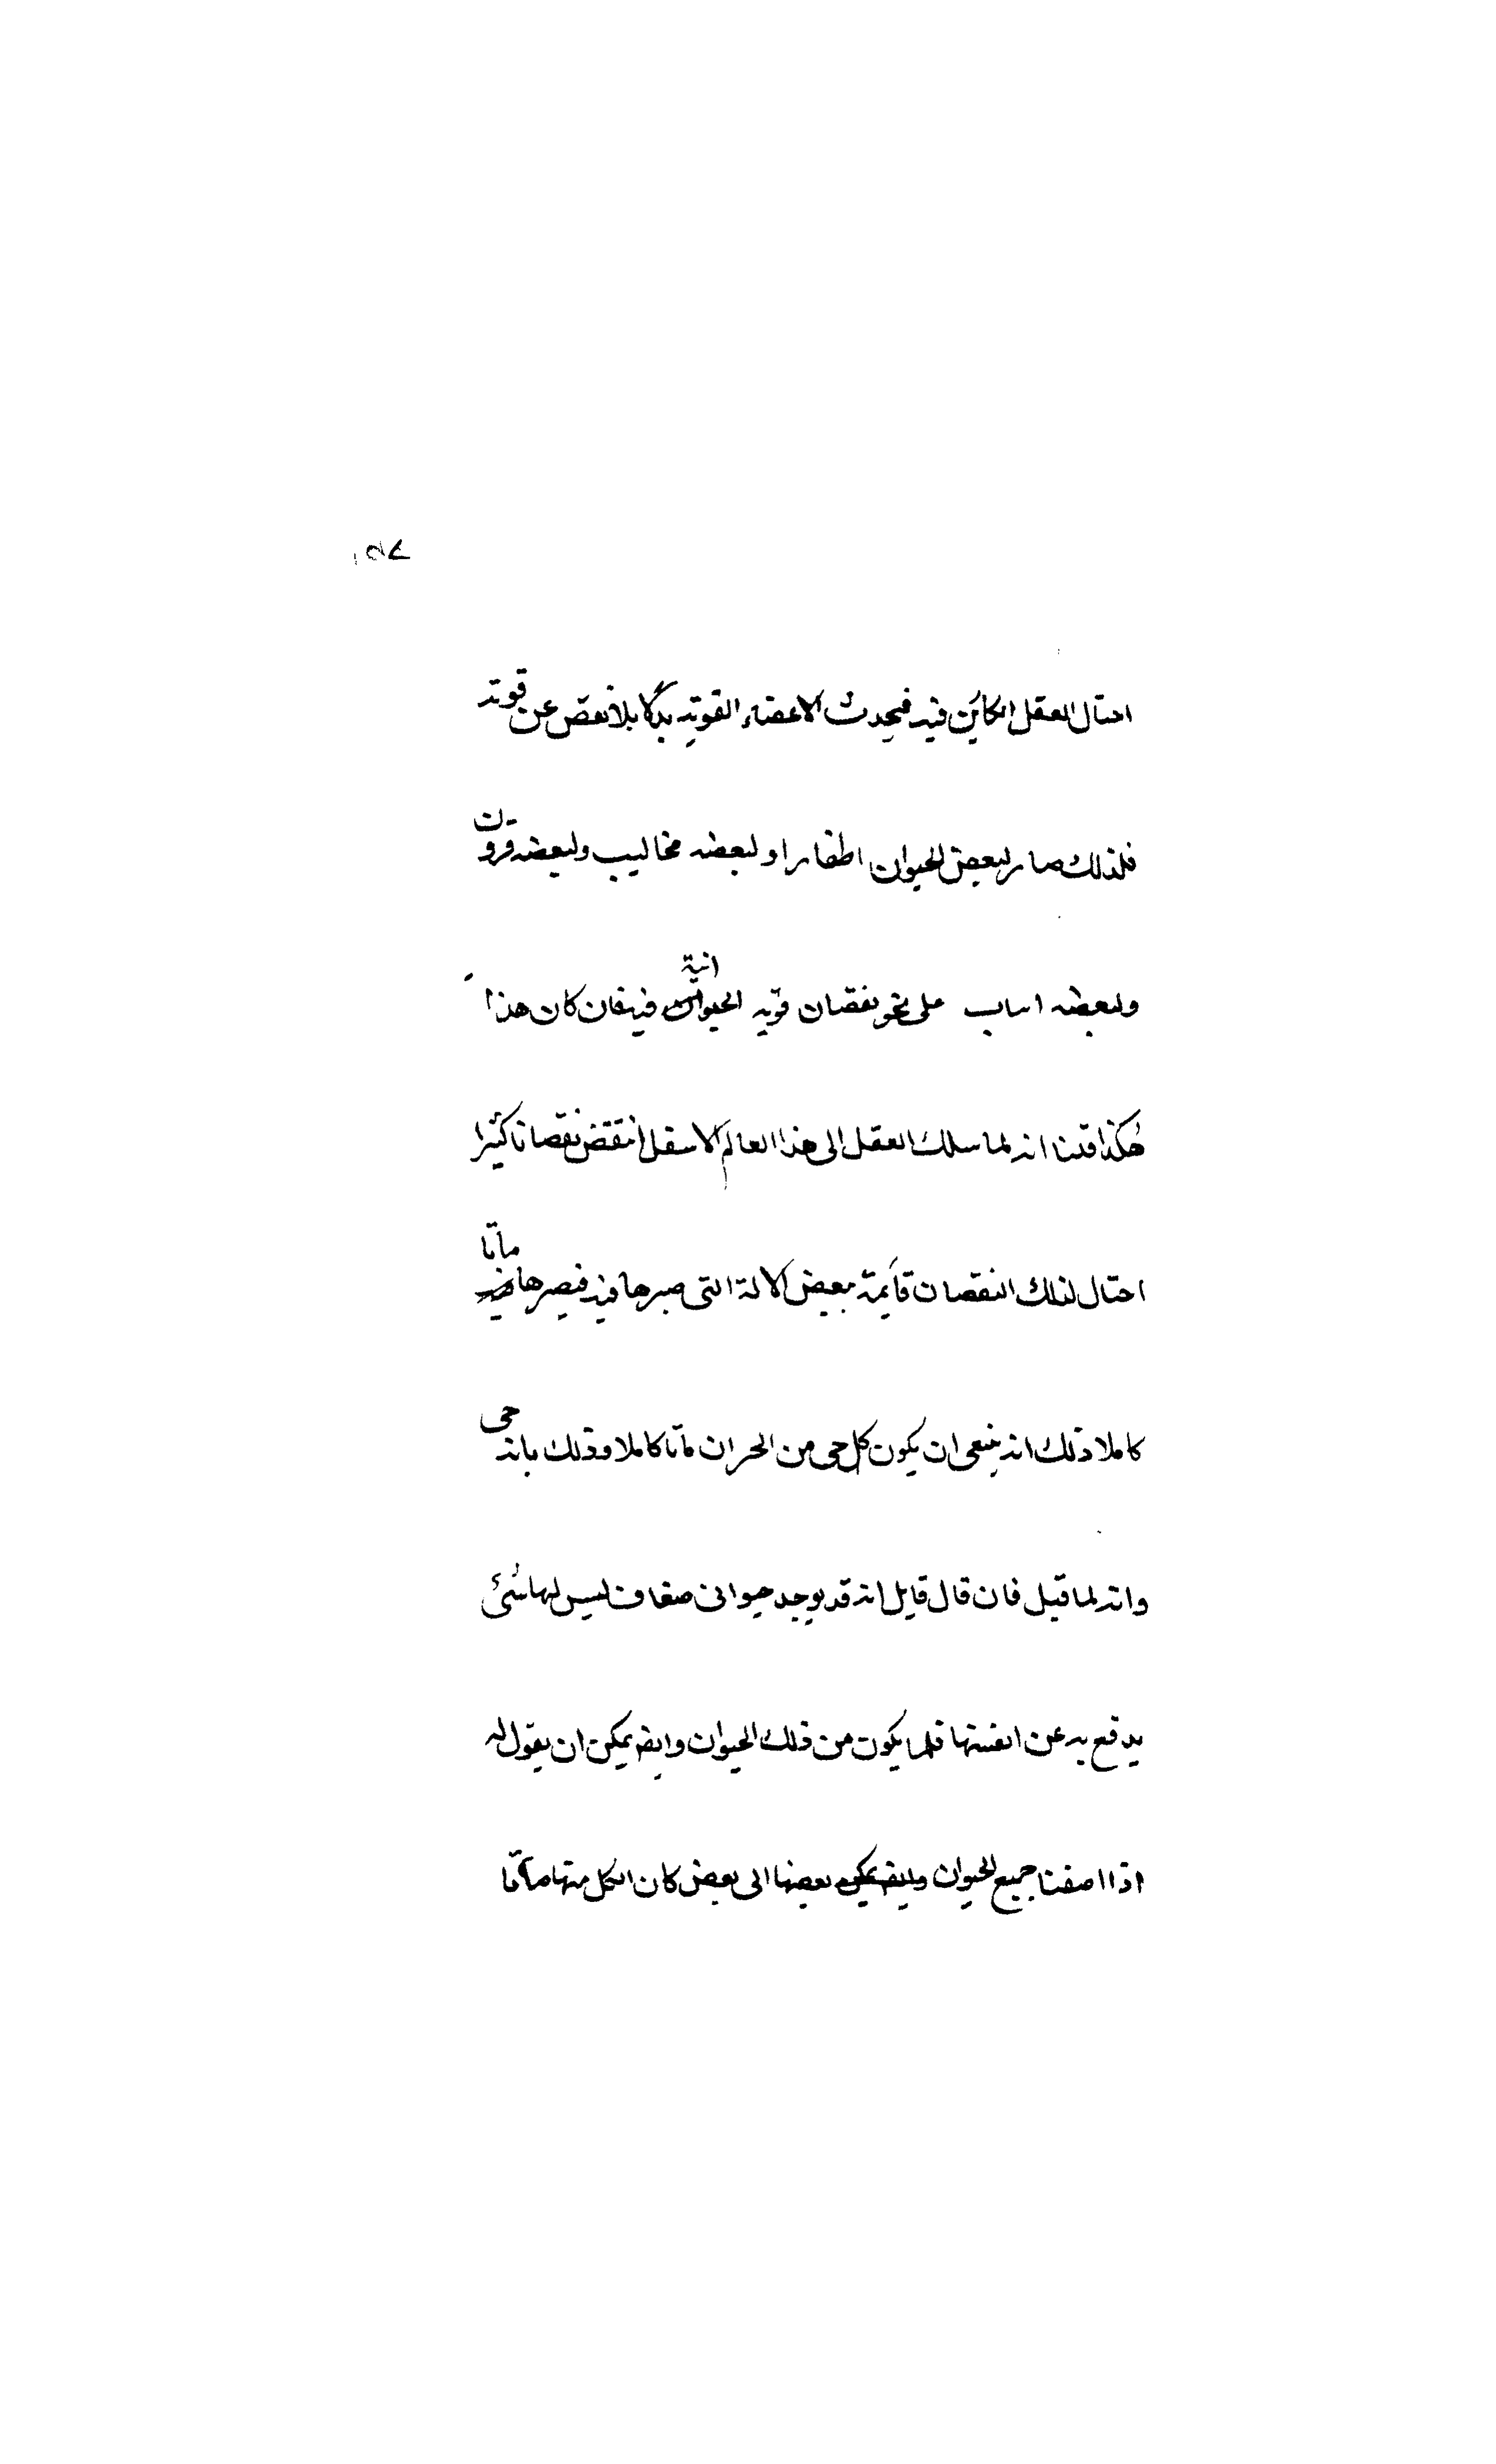 احتال العقل الكاين فيه فيحدث الاعضاء القوته بدلا بلا نقص عن قوته
فلذلك صار لبعض الحيوان اظفارا ولبعضه مخاليب ولبعضه قرون
ولبعضه انياب على نحو نقصان قوته الحيوانية فيه فان كان هذا
هكذا قلنا انه لما سلك العقل الى هذا العالم الاسفل انتقض نقصانا كثيرا
احتال لذلك النقصان قايمة ببعض الالة التى صيرها فيه فيصرها تاما
كاملا ذلك انه ينبغى ان يكون كل حى من الحران تاما كاملا وذلك بانه حى
وانه لما قيل فان قال قايل انه قد يوجد حيوانى ضعاف ليس لها شئ
يدفع به عن انفسها قلما يكون من ذلك الحيوان وايضا يمكن ان يقول له
اذا اضفنا جميع الحيوان بعضها الى بعض كان الكل منها تاما